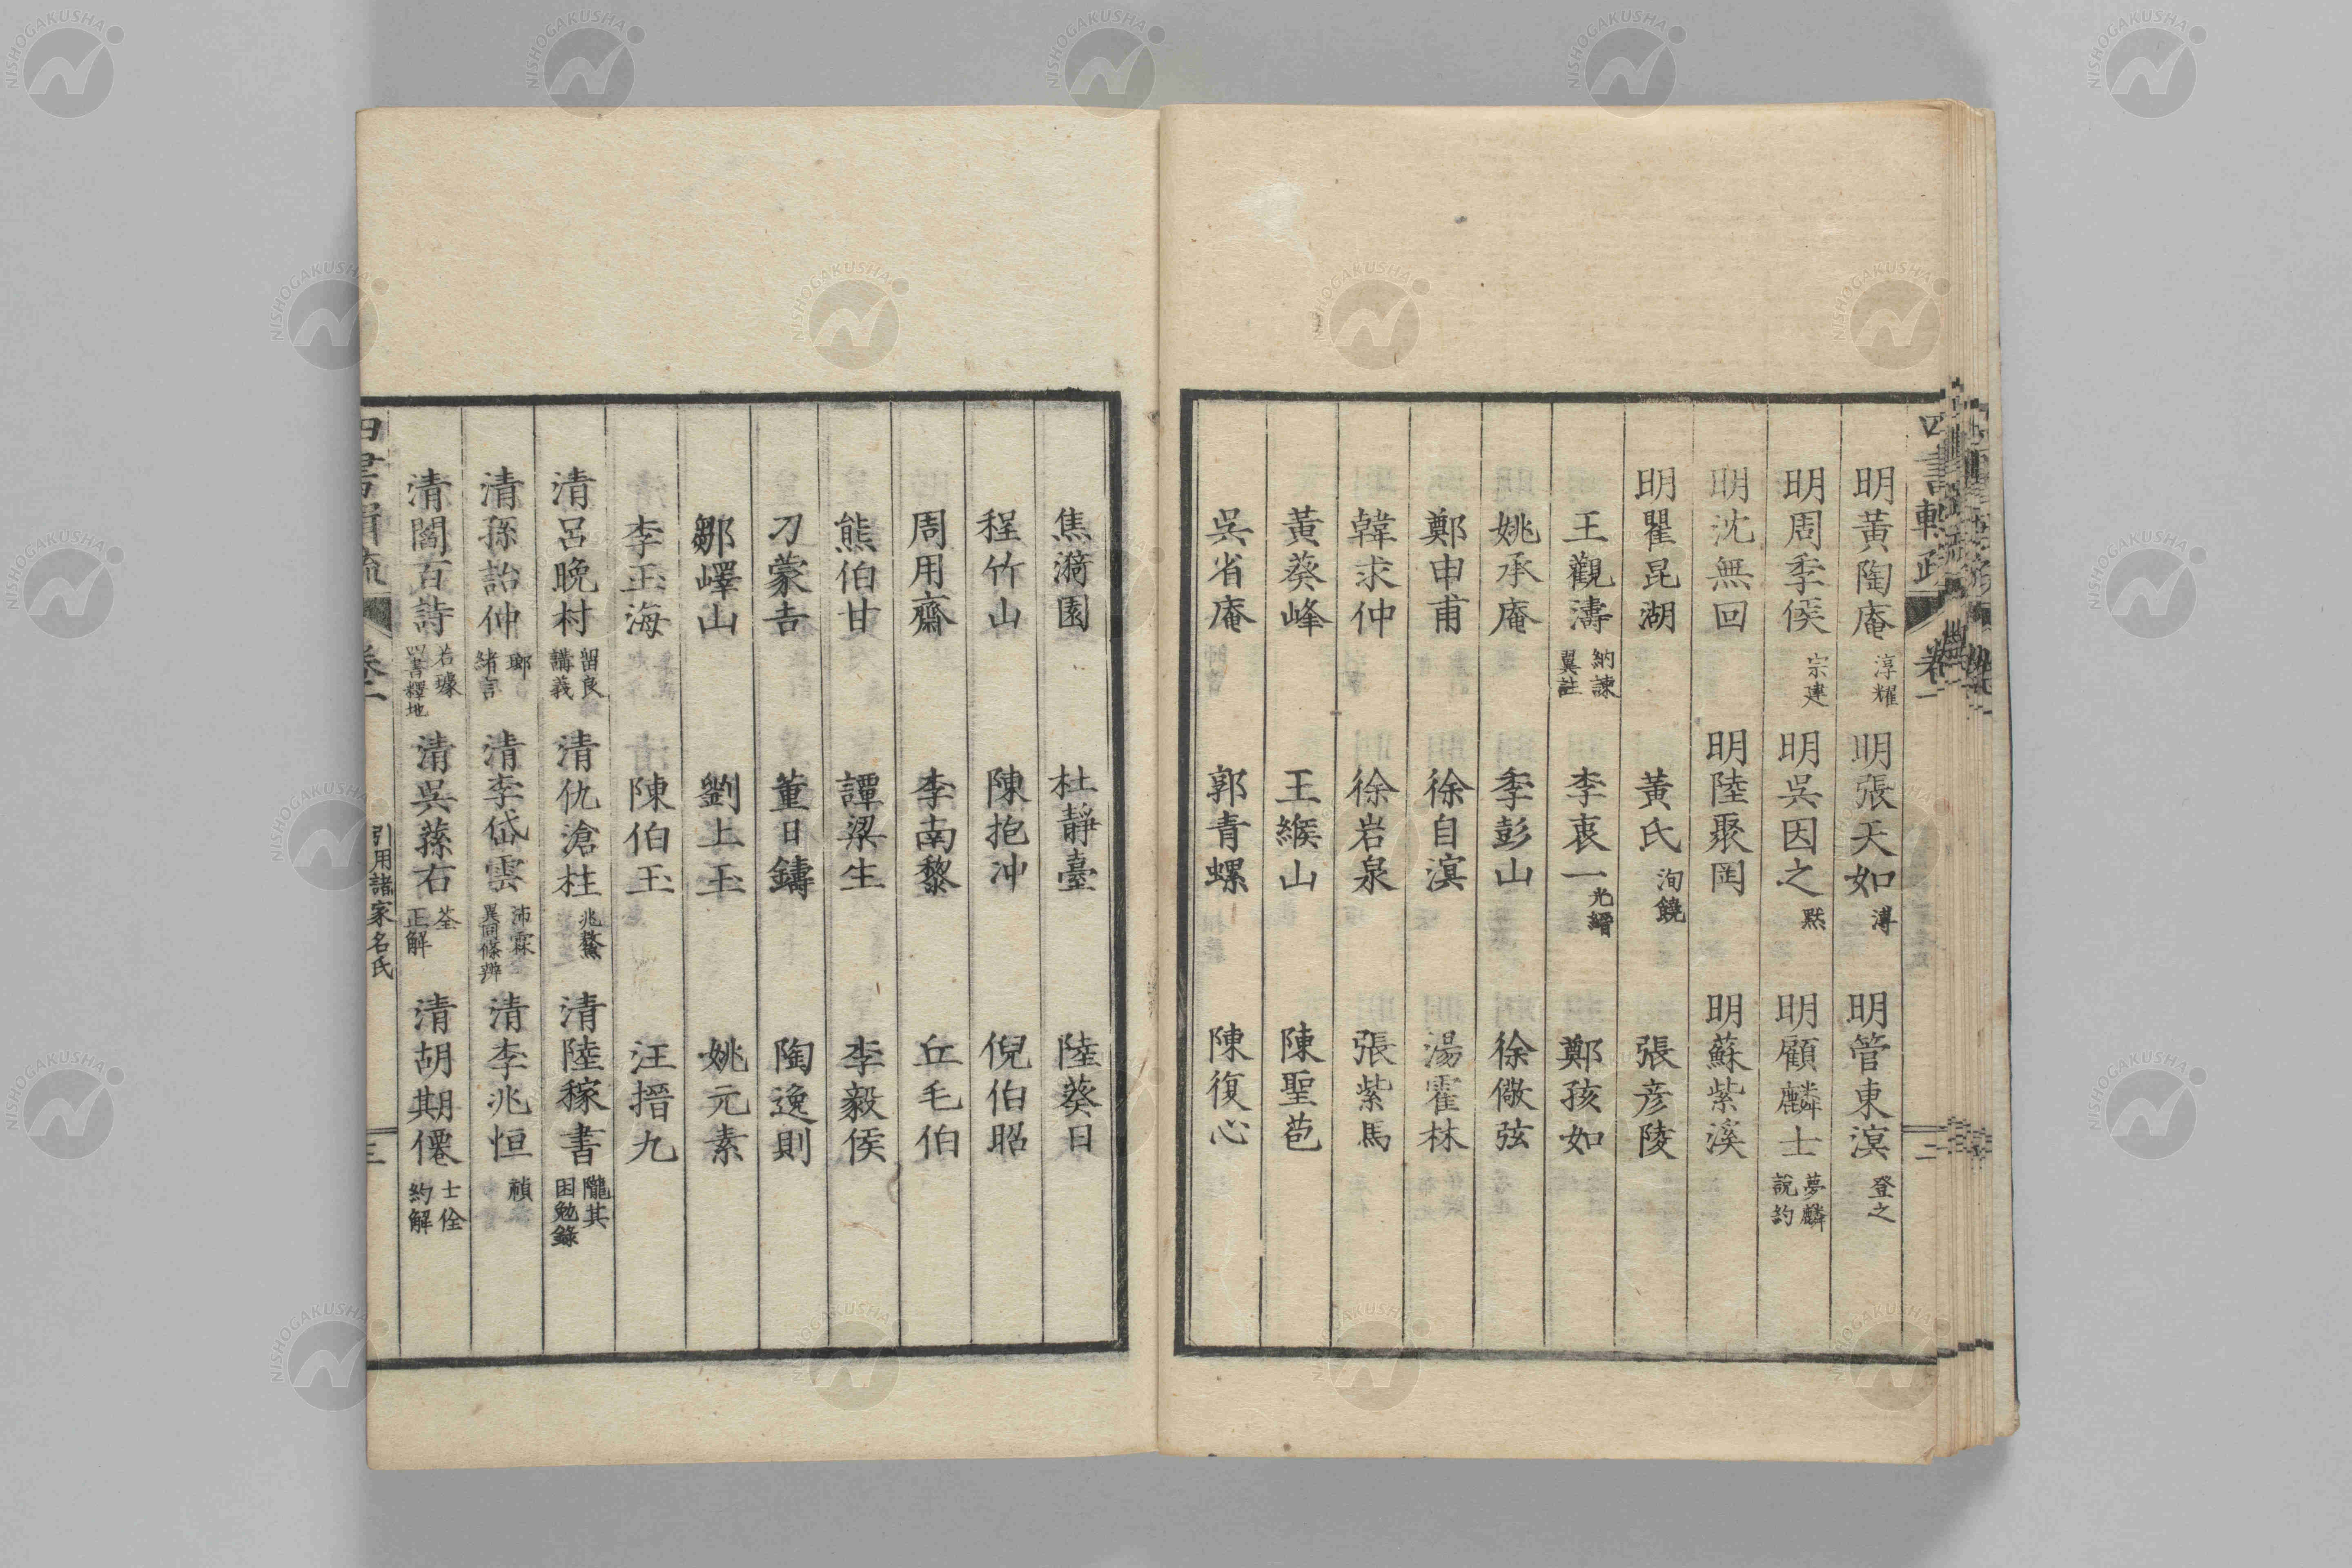 四書輯疏 卷一 二
明黃陶庵 淳耀 明張天如 溥 明管東溟 登之
明周季侯 宗建 明吳因之 默 明顧麟士 夢麟 說約
明沈無回 明陸聚岡 明蘇紫溪
明瞿昆湖 黃氏 洵饒 張彥陵
王觀濤 納諫 翼註 李衷一 光縉 鄭孩如
姚承庵 季彭山 徐儆弦
鄭申甫 徐自溟 湯霍林
韓求仲 徐岩泉 張紫馬
黃葵峰 王緱山 陳聖苞
吳省庵 郭青螺 陳復心
焦漪園 杜靜臺 陸葵日
程竹山 陳抱冲 倪伯昭
周用齋 李南黎 丘毛伯
熊伯甘 譚梁生 李毅侯
刁蒙吉 董日鑄 陶逸則
鄒嶧山 劉上玉 姚元素
李玉海 陳伯玉 汪搢九
清呂晚村 留良 講義 清仇滄柱 兆鰲 清陸稼書 隴其 困勉錄
清孫詒仲 瑯 緒言 清李岱雲 沛霖 異同條辨 清李兆恒 禎
清閻百詩 若璩 四書釋地 清吳蓀右 荃 正解 清胡期僊 士佺 約解
四書輯疏 卷一 引用諸家名氏 三
NISHOGAKUSHA